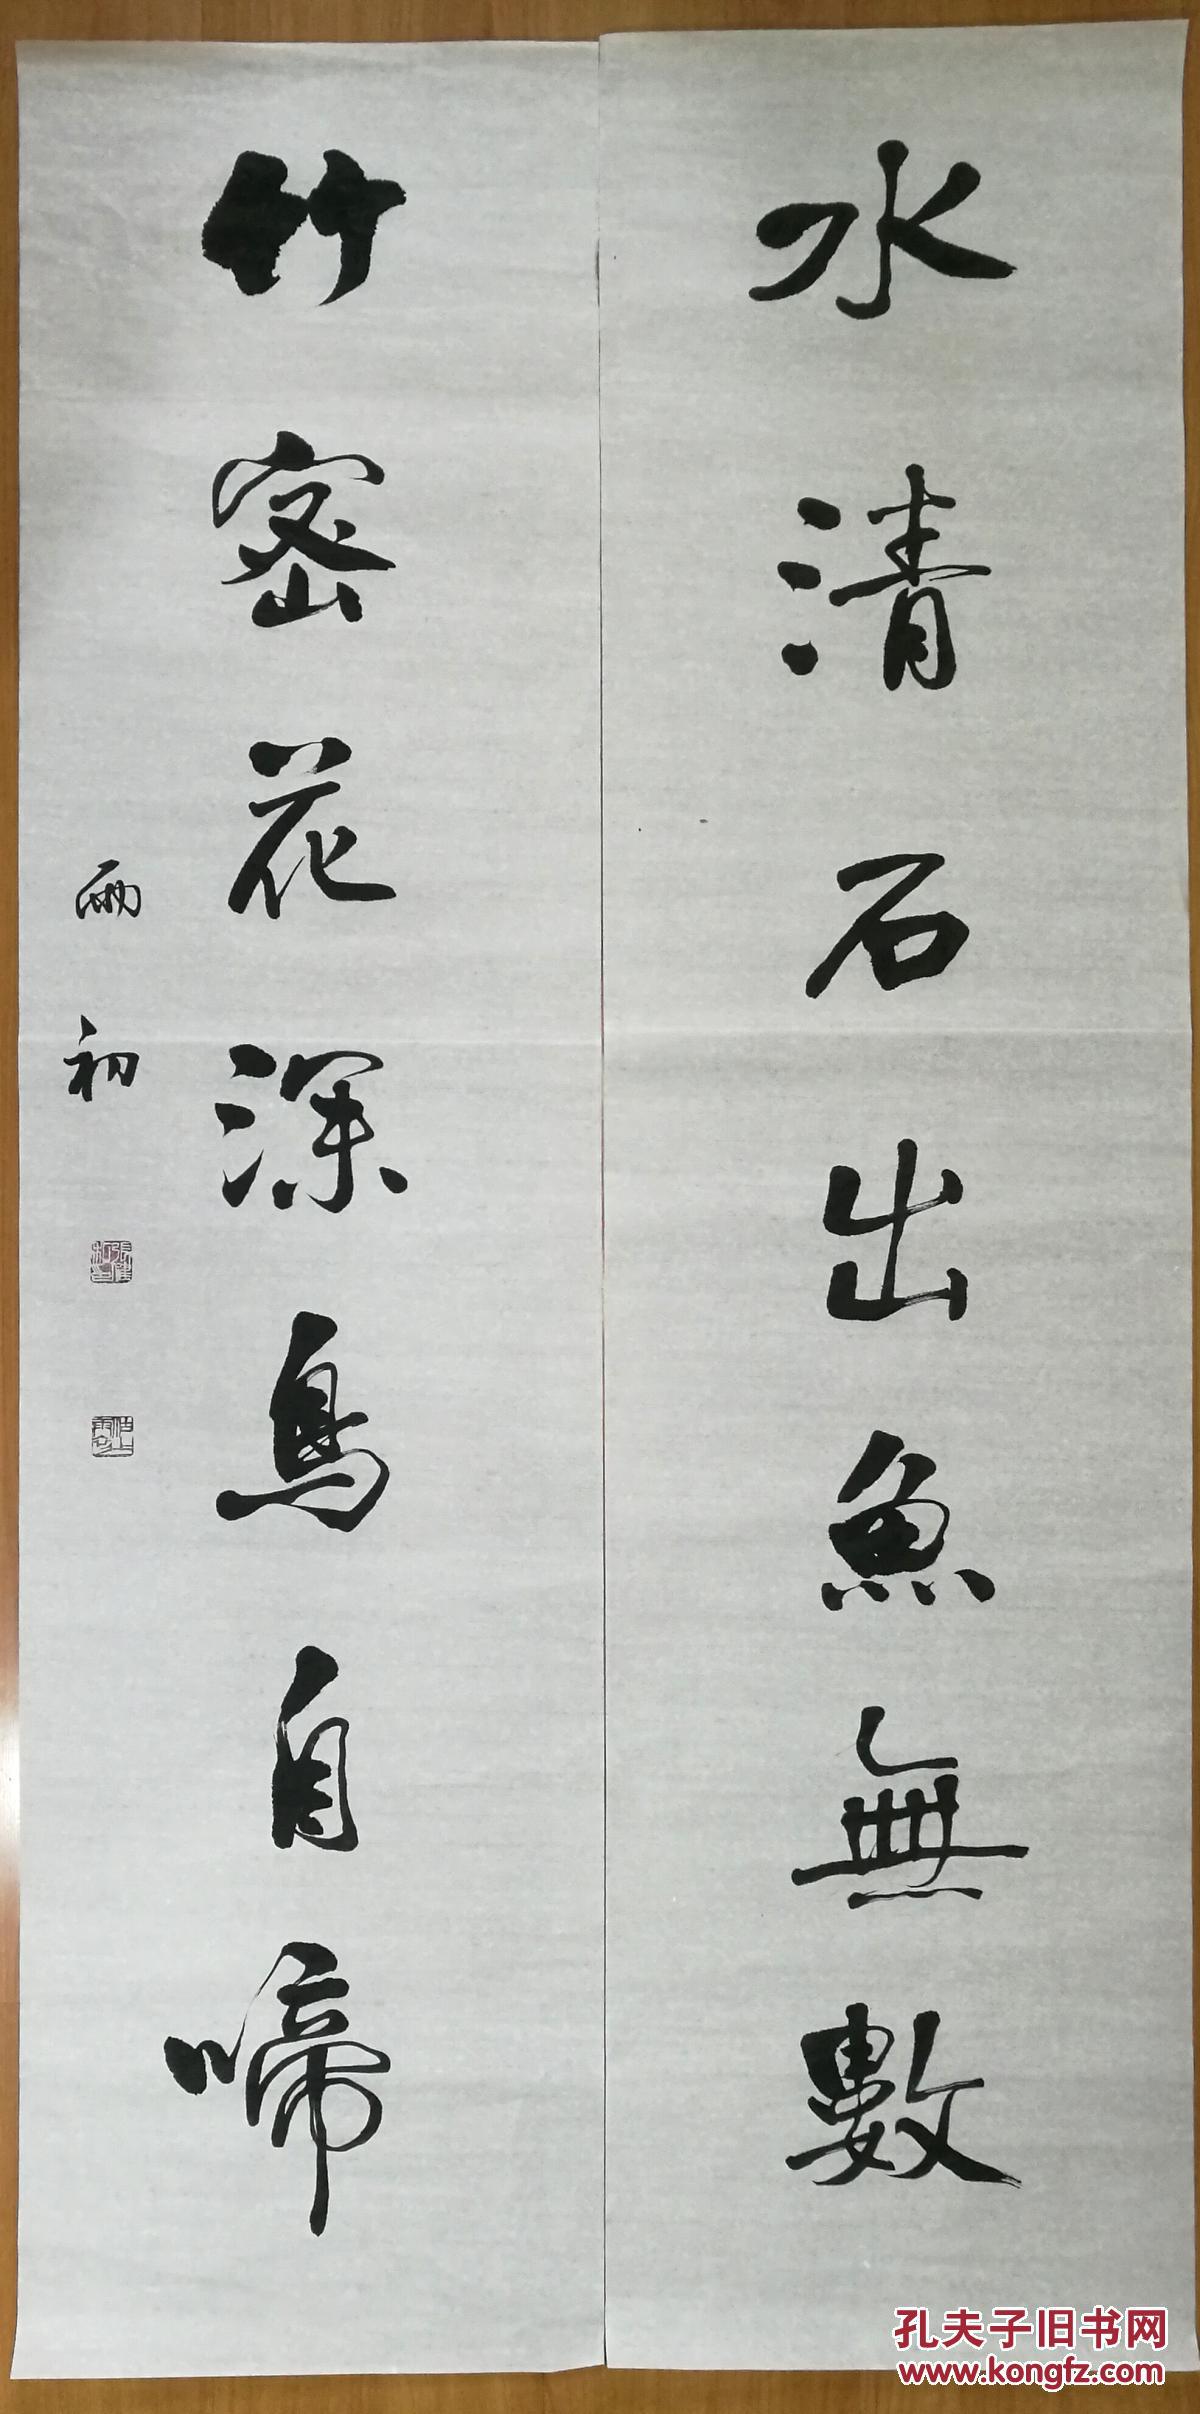 水清石出魚無數
竹密花深鳥自啼
雨初
孔夫子旧书网
www.kongfz.com